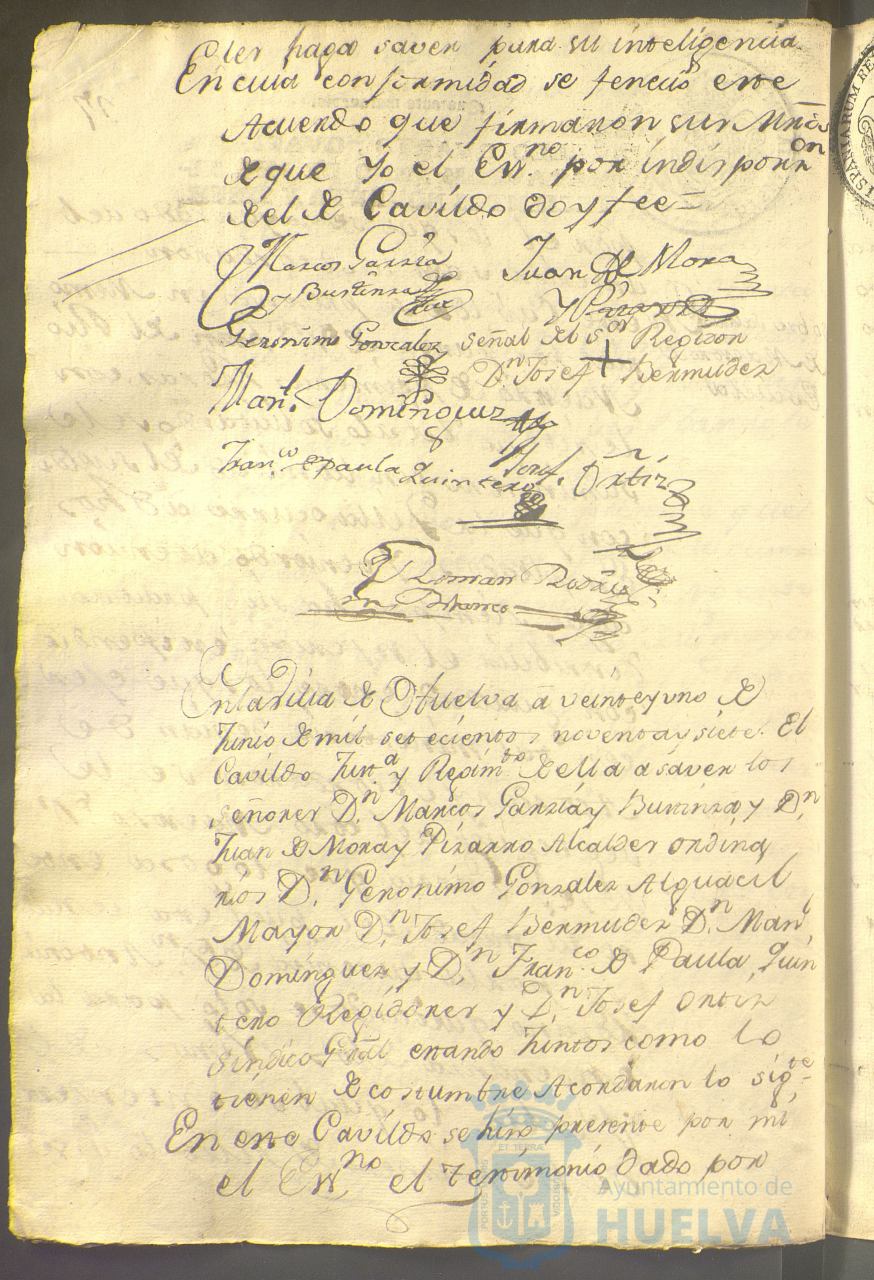 seles haga saver para su inteligencia.
En cuia conformidad se fenecio este
Acuerdo que firmaron sus Mrds
de que Yo el Essno por indisposon
del de Cavildo doy fee=
Marcos Garzia
y Bustinza
Juan de Mora
y Pizarro
Geronimo Gonzalez
señal del sor Regidor
Dn Josef + Bermudez
Manl. Dominguez
Franco de paula Quintero
Josef. Ortiz
Roman Rodrig
Blanco
En la villa de Huelva a veinte y uno de
Junio de mil setecientos noventa y siete. El
Cavildo Justa y Regimto de ella a saver los
señores Dn. Marcos Garzia y Bustinza y Dn.
Juan de Mora y Pizarro Alcaldes ordina
rios Dn. Geronimo Gonzalez Alguacil
Mayor Dn. Josef Bermudez Dn. Manl
Dominguez y Dn. Franco de Paula Quin
tero Regidores y Dn. Josef Ortiz
sindico Gral estando Juntos como lo
tienen de costumbre Acordaron lo sigte=
En este Cavildo se hizo presente por mi
el Essno el testimonio dado por
Ayuntamiento de
HUELVA